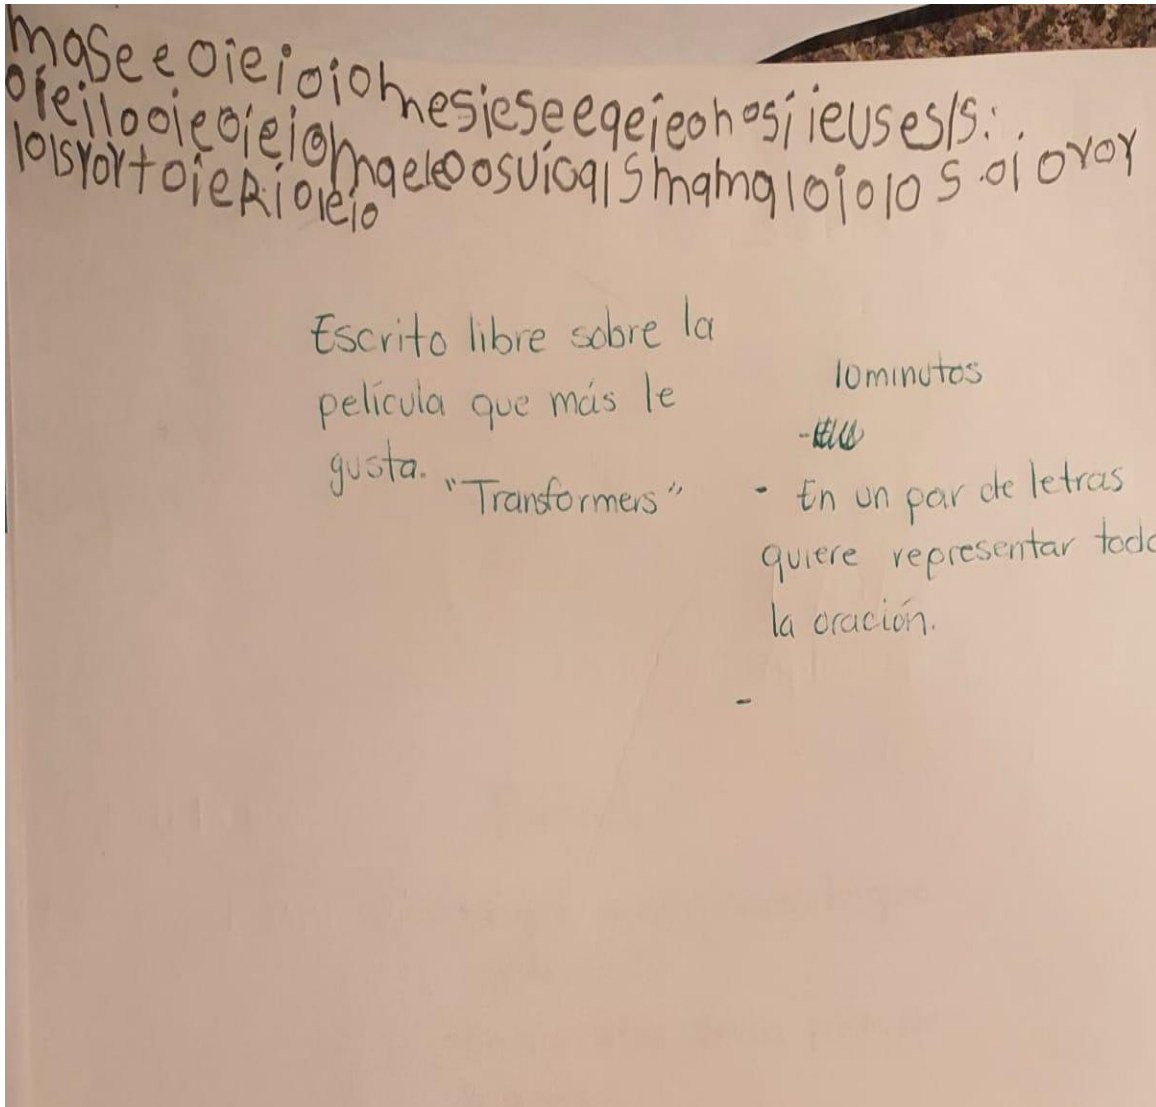 maseeoieioiohnesieseeqeieohosíieusesis:
oieillooieoieiohnaeleoosuícqismamaloiolos.oioror
loisrortoieRioleio
Escrito libre sobre la
película que más le
gusta. "Transformers"
10minutos
- En un par de letras
quiere representar todo
la oración.
-